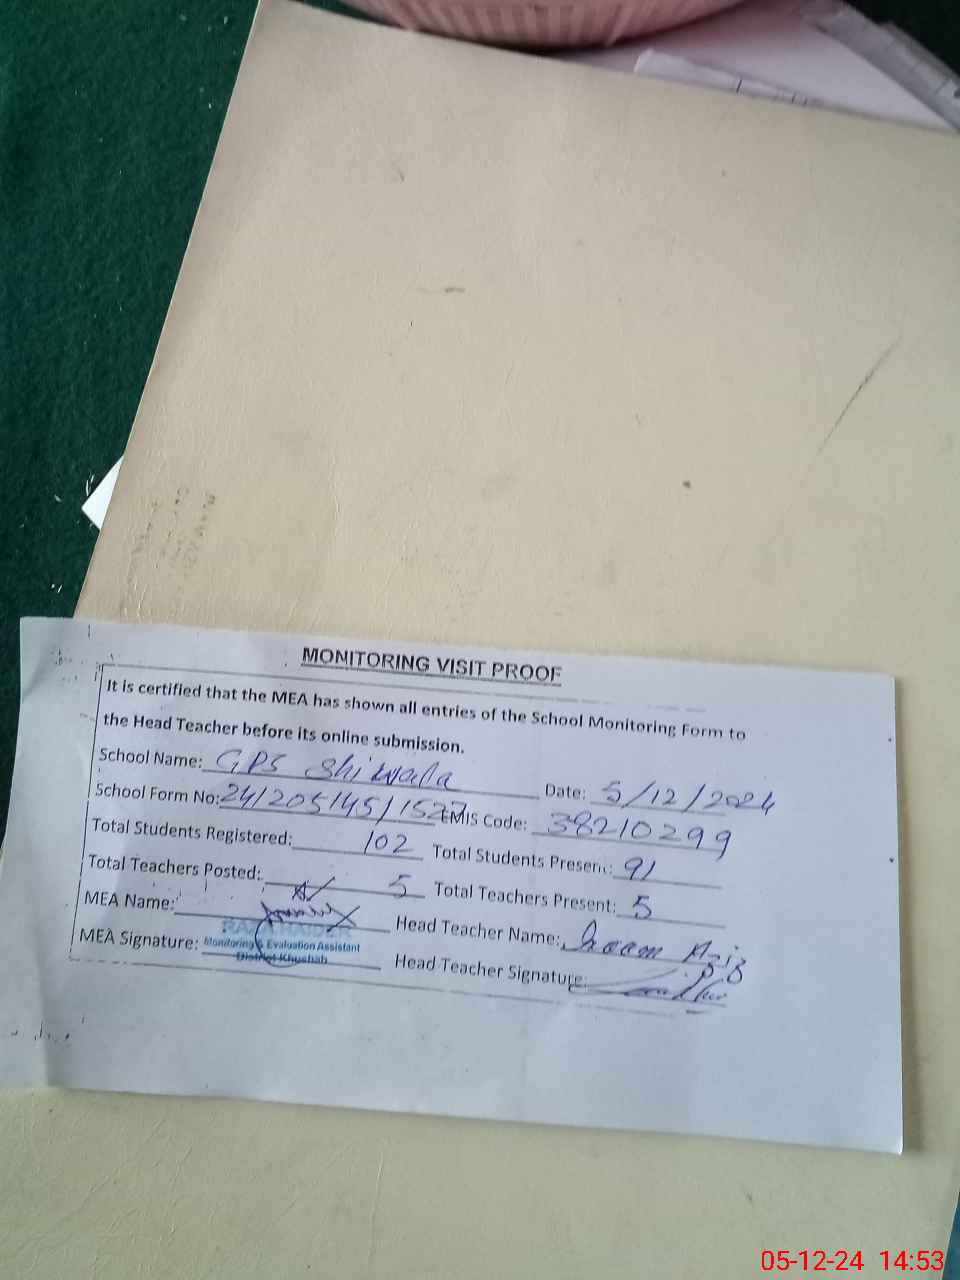 MONITORING VISIT PROOF
It is certified that the MEA has shown all entries of the School Monitoring Form to
the Head Teacher before its online submission.
School Name: GPS Shiwala Date: 5/12/2024
School Form No: 24/205145/1527 EMIS Code: 38210299
Total Students Registered: 102 Total Students Present: 91
Total Teachers Posted: 5 Total Teachers Present: 5
MEA Name: Head Teacher Name: Aziz
RAZA HAIDER
Monitoring & Evaluation Assistant
District Khushab
MEA Signature: Head Teacher Signature:
05-12-24 14:53